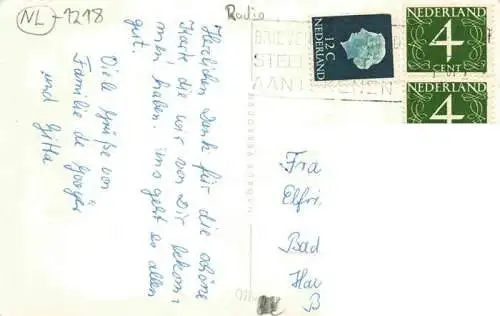 NL-1218
Radio
BRIEVEN
STEL
AAN
12 C
NEDERLAND
NEDERLAND
4
CENT
NEDERLAND
4
Herzlichen Dank für die schöne
Karte die wir von Dir bekom-
men haben. uns geht es allen
gut.
Viele Grüße von
Familie de
und Gitta
Fra
Elfri
Bad
Har
B